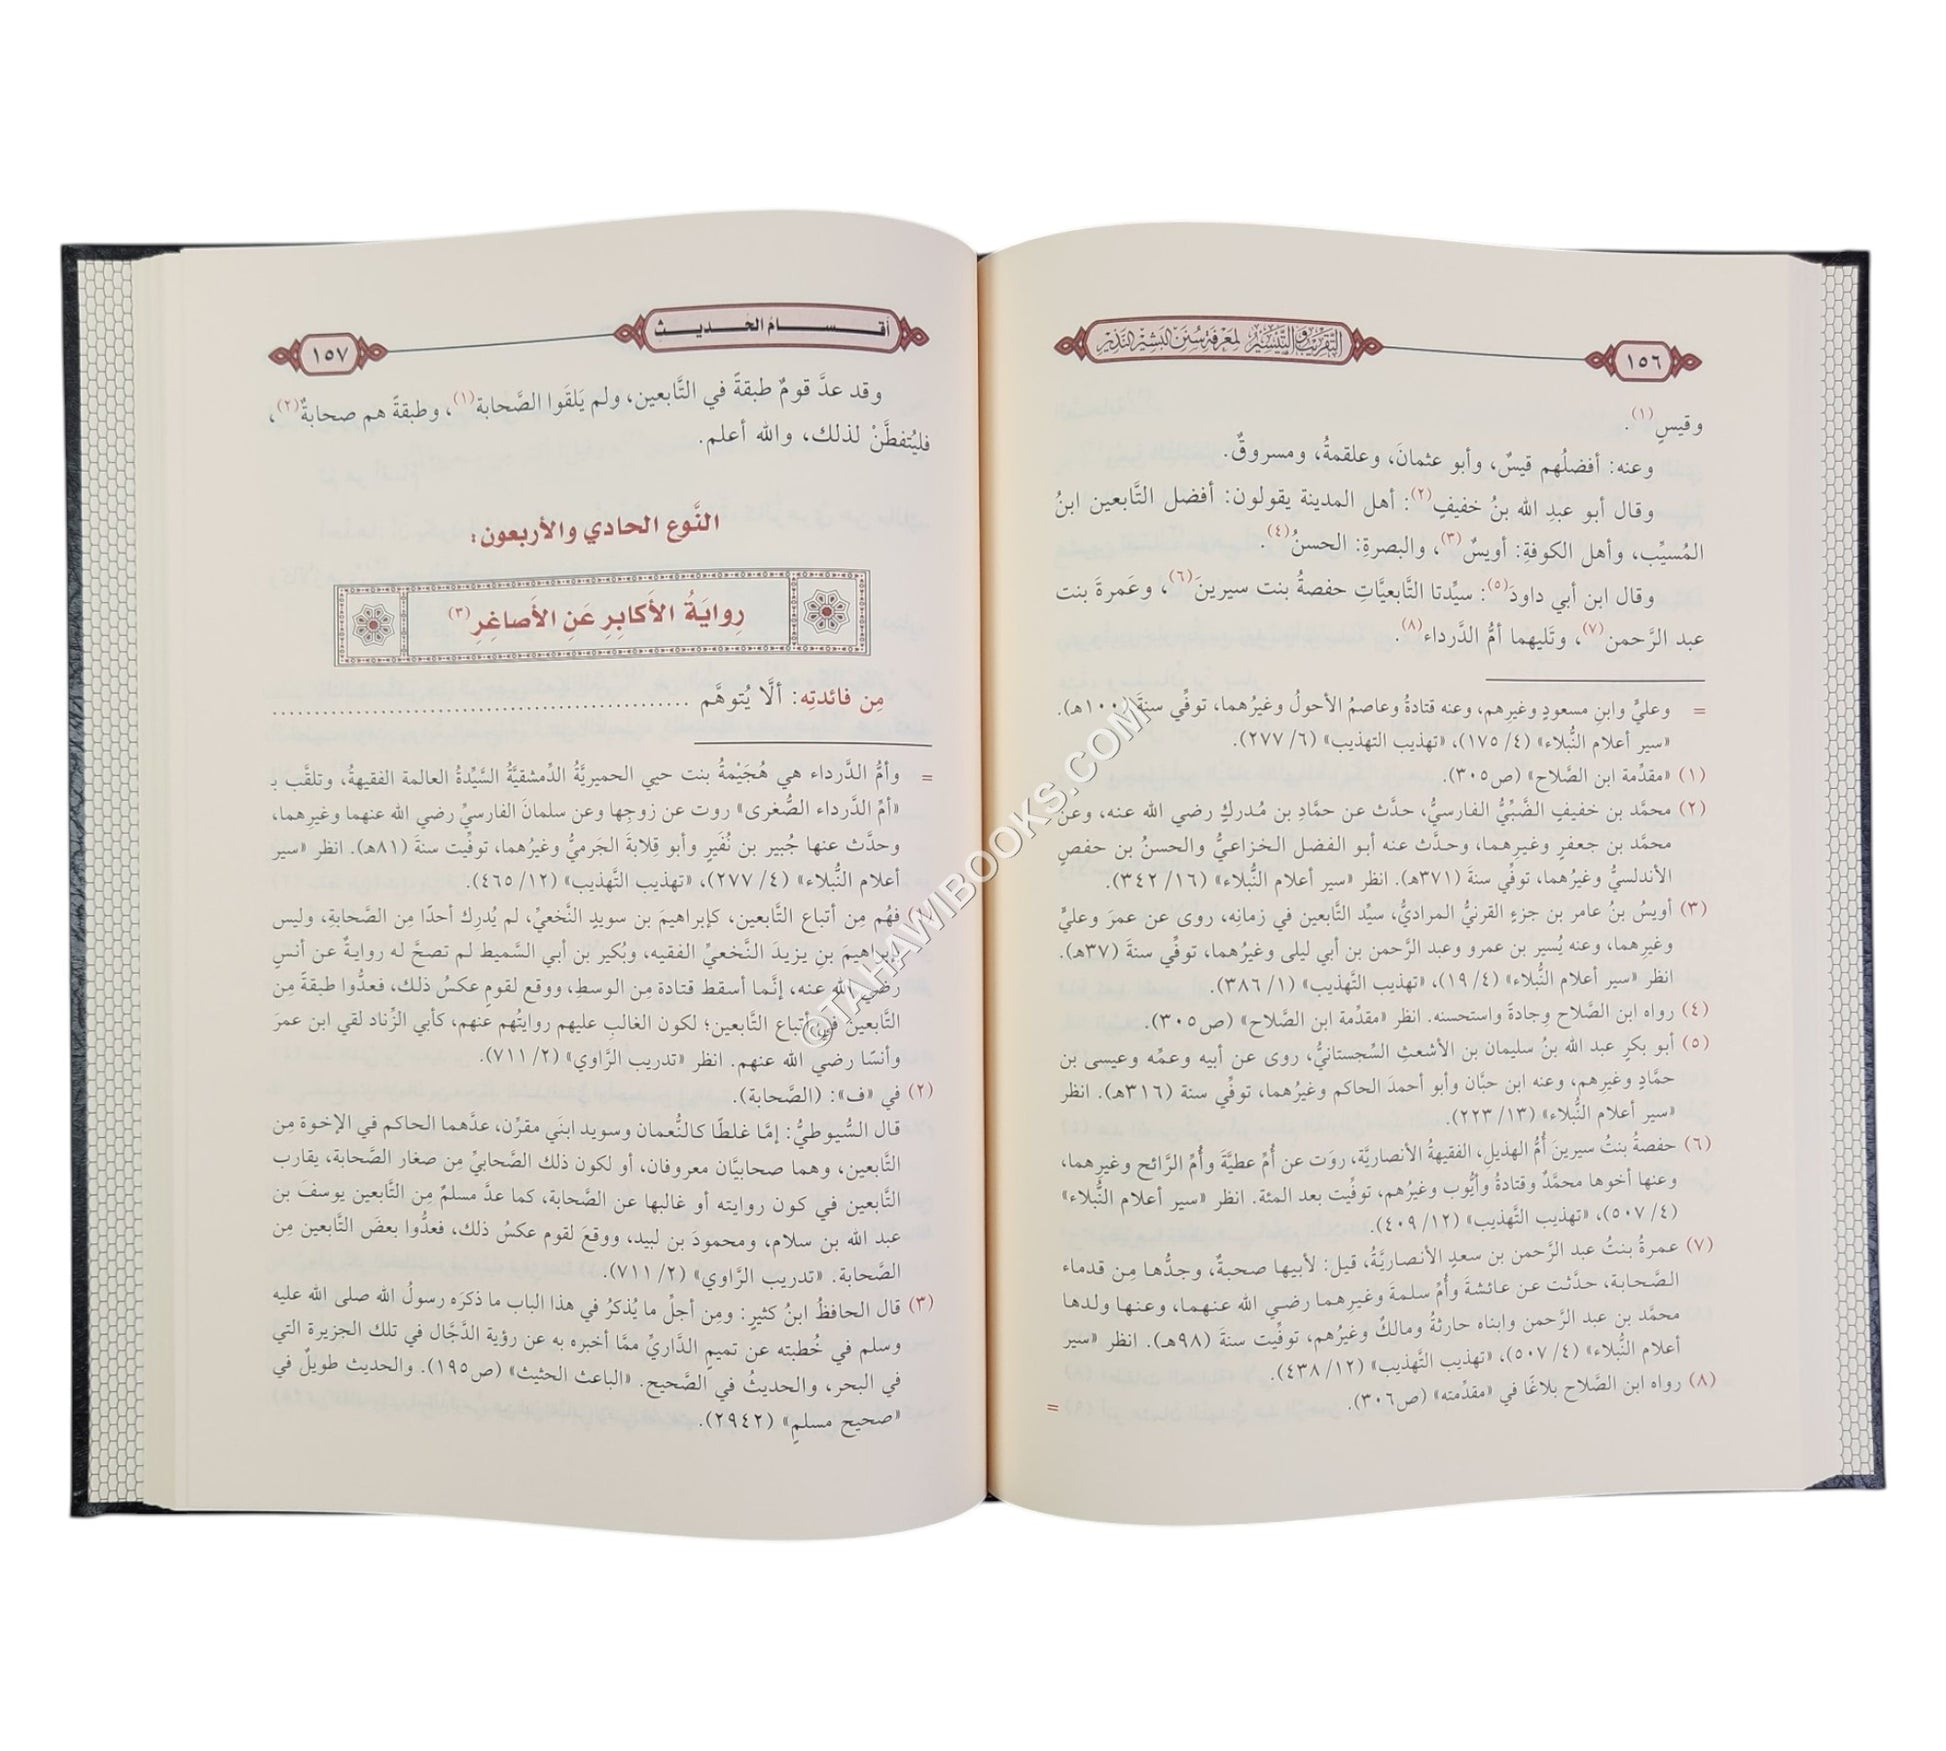 ١٥٦
التقريب والتيسير لمعرفة سنن البشير النذير
وقيسٍ(١).
وعنه: أفضلُهم قيسٌ، وأبو عثمانَ، وعلقمةُ، ومسروقٌ.
وقال أبو عبدِ الله بنُ خفيفٍ(٢): أهل المدينة يقولون: أفضل التَّابعين ابنُ
المُسيِّب، وأهل الكوفةِ: أويسٌ(٣)، والبصرةِ: الحسنُ(٤).
وقال ابن أبي داودَ(٥): سيِّدتا التَّابعيَّاتِ حفصةُ بنت سيرينَ(٦)، وعَمرةَ بنت
عبد الرَّحمن(٧)، وتَليهما أمُّ الدَّرداء(٨).
= وعليٍّ وابنِ مسعودٍ وغيرِهم، وعنه قتادةُ وعاصمُ الأحولُ وغيرُهما، توفِّي سنةَ (١٠٠هـ).
«سير أعلام النُّبلاء» (٤/ ١٧٥)، «تهذيب التهذيب» (٦/ ٢٧٧).
(١) «مقدِّمة ابن الصَّلاح» (ص٣٠٥).
(٢) محمَّد بن خفيفٍ الضَّبِّيُّ الفارسيُّ، حدَّث عن حمَّادِ بن مُدركٍ رضي الله عنه، وعن
محمَّد بن جعفرٍ وغيرِهما، وحدَّث عنه أبو الفضل الخزاعيُّ والحسنُ بن حفصٍ
الأندلسيُّ وغيرُهما، توفِّي سنةَ (٣٧١هـ). انظر «سير أعلام النُّبلاء» (١٦/ ٣٤٢).
(٣) أويسُ بنُ عامر بن جزءٍ القرنيُّ المراديُّ، سيِّد التَّابعين في زمانِه، روى عن عمرَ وعليٍّ
وغيرِهما، وعنه يُسير بن عمرو وعبد الرَّحمن بن أبي ليلى وغيرُهما، توفِّي سنةَ (٣٧هـ).
انظر «سير أعلام النُّبلاء» (٤/ ١٩)، «تهذيب التَّهذيب» (١/ ٣٨٦).
(٤) رواه ابن الصَّلاح وِجادةً واستحسنه. انظر «مقدِّمة ابن الصَّلاح» (ص٣٠٥).
(٥) أبو بكرٍ عبد الله بنُ سليمان بن الأشعثِ السِّجستانيُّ، روى عن أبيه وعمِّه وعيسى بن
حمَّادٍ وغيرِهم، وعنه ابن حبَّان وأبو أحمدَ الحاكم وغيرُهما، توفِّي سنة (٣١٦هـ). انظر
«سير أعلام النُّبلاء» (١٣/ ٢٢٣).
(٦) حفصةُ بنتُ سيرينَ أُمُّ الهذيلِ، الفقيهةُ الأنصاريَّة، روَت عن أُمِّ عطيَّةَ وأُمِّ الرَّائحِ وغيرِهما،
وعنها أخوها محمَّدٌ وقتادةُ وأيُّوب وغيرُهم، توفِّيت بعد المئة. انظر «سير أعلام النُّبلاء»
(٤/ ٥٠٧)، «تهذيب التَّهذيب» (١٢/ ٤٠٩).
(٧) عمرةُ بنتُ عبد الرَّحمن بن سعدٍ الأنصاريَّةُ، قيل: لأبيها صحبةٌ، وجدُّها مِن قدماء
الصَّحابة، حدَّثت عن عائشةَ وأُمِّ سلمةَ وغيرِهما رضي الله عنهما، وعنها ولدها
محمَّد بن عبد الرَّحمن وابناه حارثةُ ومالكٌ وغيرُهم، توفِّيت سنةَ (٩٨هـ). انظر «سير
أعلام النُّبلاء» (٤/ ٥٠٧)، «تهذيب التَّهذيب» (١٢/ ٤٣٨).
(٨) رواه ابن الصَّلاح بلاغًا في «مقدِّمته» (ص٣٠٦).
=
أقسام الحديث
١٥٧
وقد عدَّ قومٌ طبقةً في التَّابعين، ولم يَلقَوا الصَّحابة(١)، وطبقةً هم صحابةٌ(٢)،
فليُتفطَّنْ لذلك، والله أعلم.
النَّوع الحادي والأربعون:
رِوايَةُ الأَكابِرِ عَنِ الأَصاغِرِ(٣)
مِن فائدتِه: ألَّا يُتوهَّم
= وأمُّ الدَّرداء هي هُجَيْمةُ بنت حيي الحميريَّةُ الدِّمشقيَّةُ السَّيِّدةُ العالمة الفقيهةُ، وتلقَّب بـ
«أمِّ الدَّرداء الصُّغرى» روت عن زوجِها وعن سلمانَ الفارسيِّ رضي الله عنهما وغيرِهما،
وحدَّث عنها جُبير بن نُفَيرٍ وأبو قِلابةَ الجَرميُّ وغيرُهما، توفِّيت سنةَ (٨١هـ). انظر «سير
أعلام النُّبلاء» (٤/ ٢٧٧)، «تهذيب التَّهذيب» (١٢/ ٤٦٥).
(١) فهُم مِن أتباع التَّابعين، كإبراهيمَ بن سويدٍ النَّخعيِّ، لم يُدرِك أحدًا مِن الصَّحابةِ، وليس
بإبراهيمَ بنِ يزيدَ النَّخعيِّ الفقيه، وبُكير بن أبي السَّميط لم تصحَّ له روايةٌ عن أنسٍ
رضي الله عنه، إنَّما أسقط قتادة مِن الوسطِ، ووقع لقومٍ عكسُ ذلك، فعدُّوا طبقةً مِن
التَّابعينَ في أتباع التَّابعين؛ لكون الغالبِ عليهم روايتُهم عنهم، كأبي الزِّناد لقي ابن عمرَ
وأنسًا رضي الله عنهم. انظر «تدريب الرَّاوي» (٢/ ٧١١).
(٢) في «ف»: (الصَّحابة).
قال السُّيوطيُّ: إمَّا غلطًا كالنُّعمان وسويد ابنَي مقرِّن، عدَّهما الحاكم في الإخوة مِن
التَّابعين، وهما صحابيَّان معروفان، أو لكون ذلك الصَّحابيِّ مِن صغار الصَّحابة، يقارب
التَّابعين في كون روايته أو غالبها عن الصَّحابة، كما عدَّ مسلمٌ مِن التَّابعين يوسفَ بن
عبد الله بن سلام، ومحمودَ بن لبيد، ووقعَ لقوم عكسُ ذلك، فعدُّوا بعضَ التَّابعين مِن
الصَّحابة. «تدريب الرَّاوي» (٢/ ٧١١).
(٣) قال الحافظُ ابنُ كثيرٍ: ومِن أجلِّ ما يُذكرُ في هذا الباب ما ذكرَه رسولُ الله صلى الله عليه
وسلم في خُطبته عن تميمٍ الدَّاريِّ ممَّا أخبره به عن رؤية الدَّجَّال في تلك الجزيرة التي
في البحر، والحديثُ في الصَّحيح. «الباعث الحثيث» (ص١٩٥). والحديث طويلٌ في
«صحيح مسلمٍ» (٢٩٤٢).
©TAHAWIBOOKS.COM